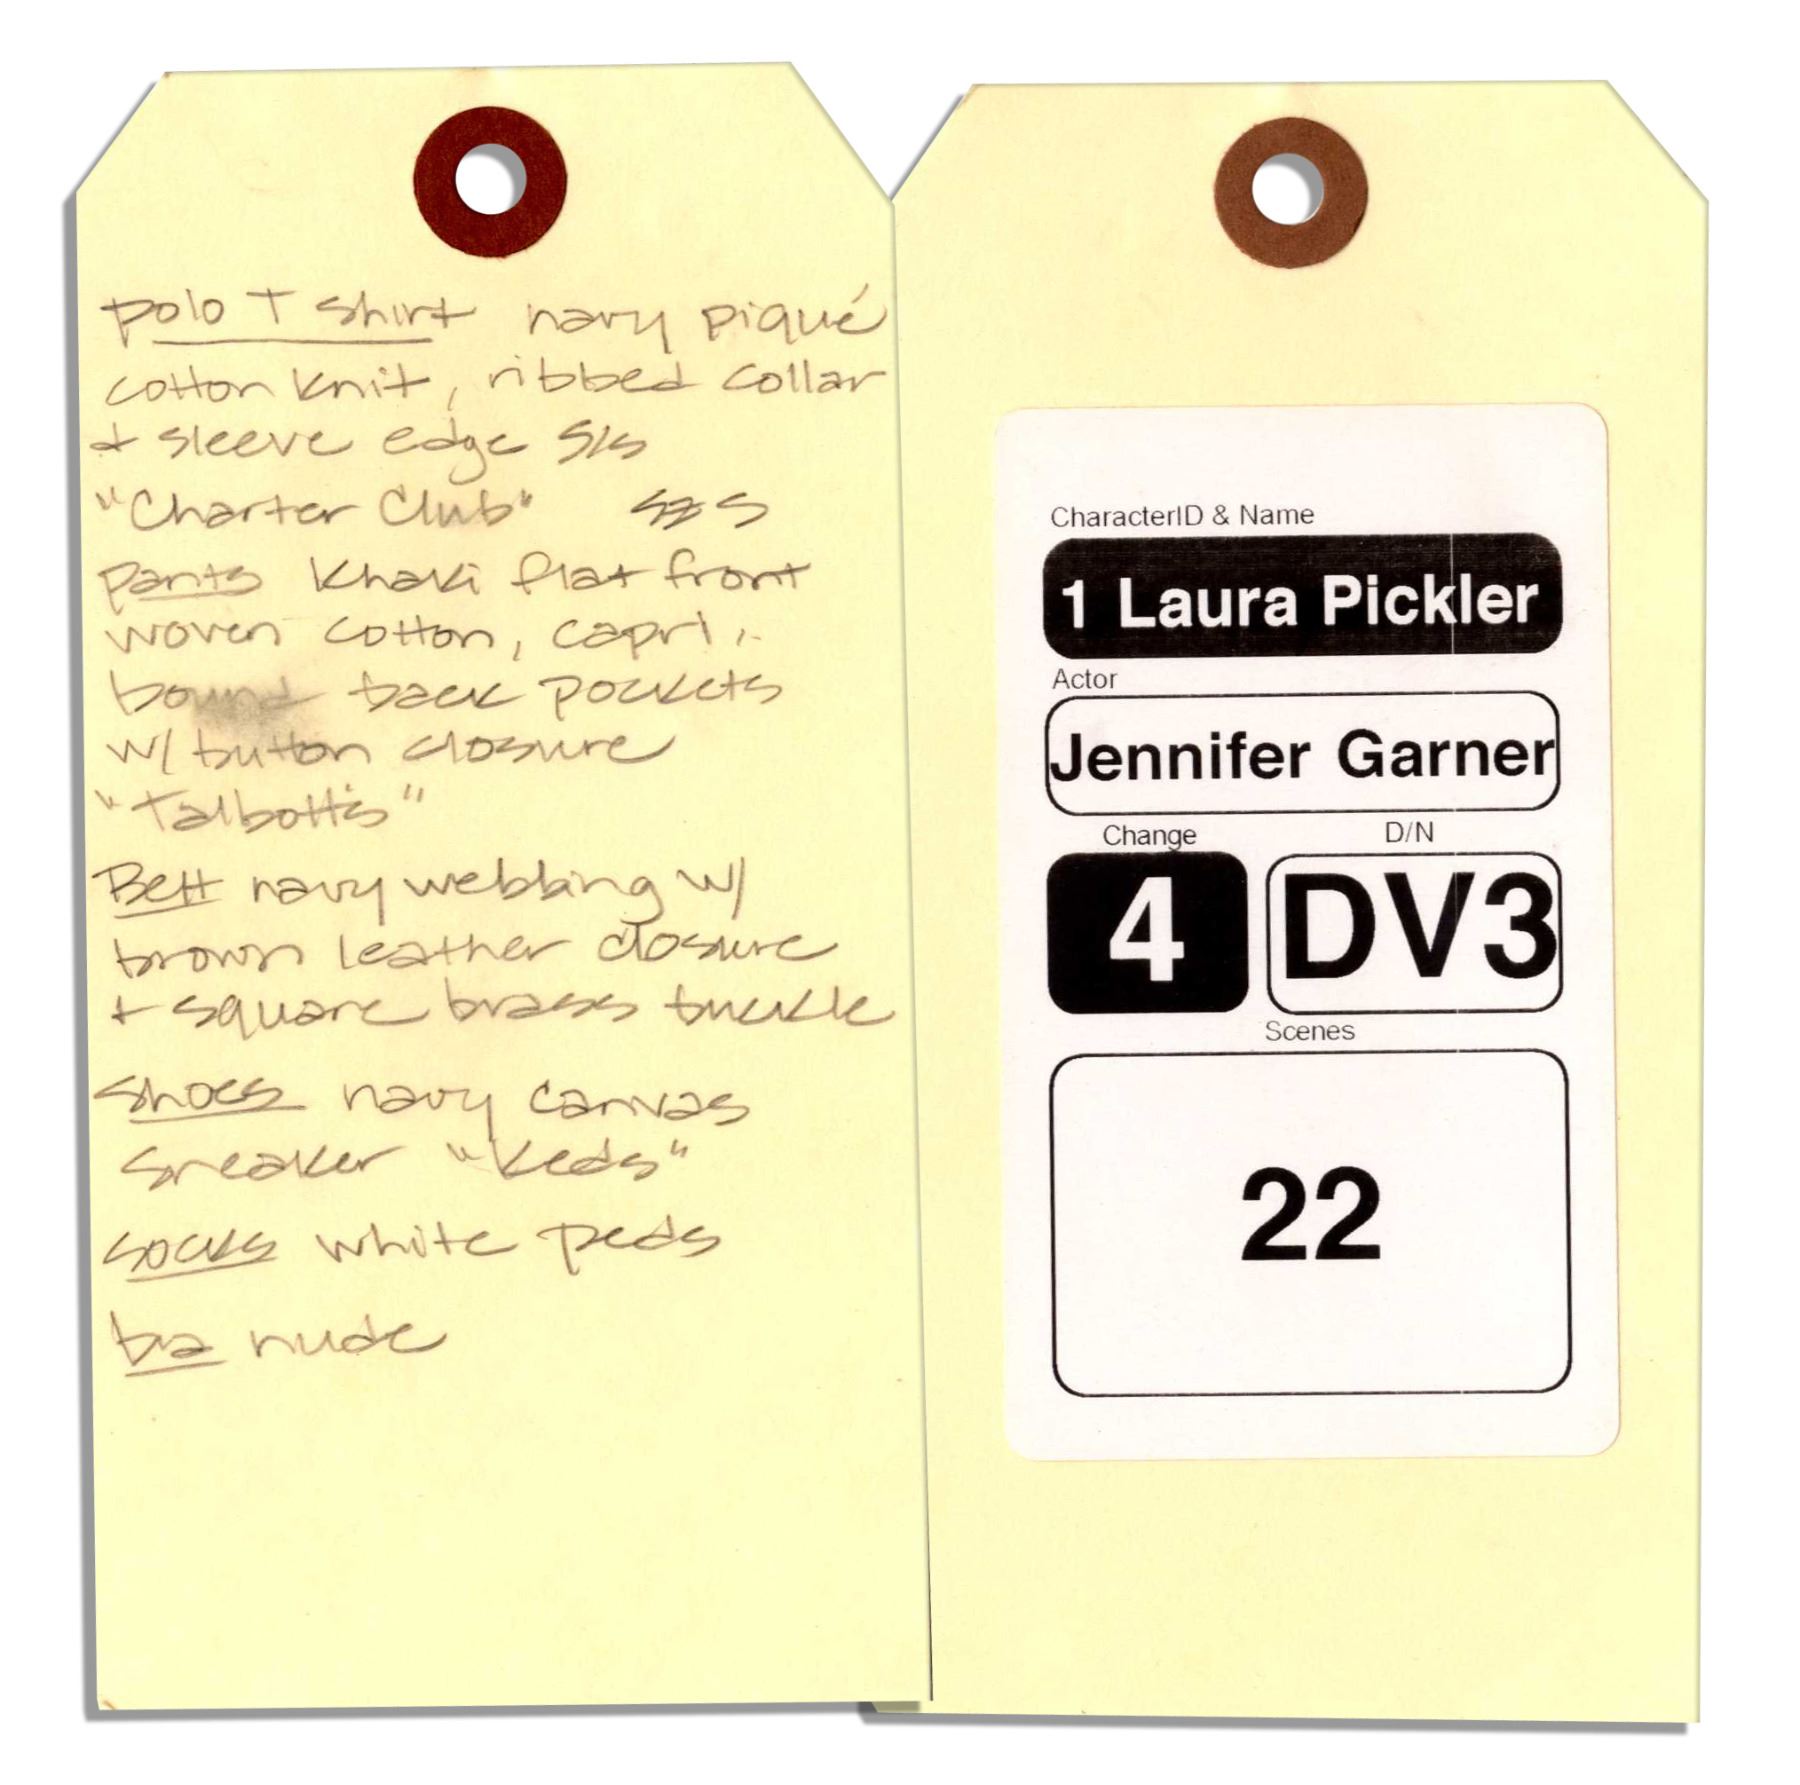 polo T shirt navy piqué
cotton knit, ribbed collar
+ sleeve edge S/S
"Charter Club" sz S
pants khaki flat front
woven cotton, capri,
bound back pockets
w/ button closure
"Talbott's"
Belt navy webbing w/
brown leather closure
+ square brass buckle
shoes navy canvas
sneaker "Keds"
socks white peds
bra nude
CharacterID & Name
1 Laura Pickler
Actor
Jennifer Garner
Change D/N
4 DV3
Scenes
22